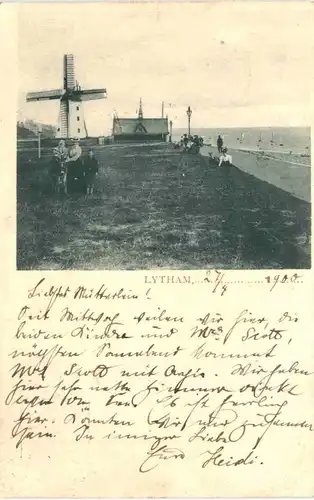 LYTHAM, 27/7 1900
Liebstes Mütterlein!
Seit Mittwoch weilen wir hier, die
beiden Kinder und Mrs Scott,
nächsten Sonnabend kommt
Mr Scott mit . Wir haben
hier sehr nette Zimmer direkt
. Es ist herrlich
hier. Könnten wir nur zusammen
sein. In inniger Liebe
Eure Heidi.